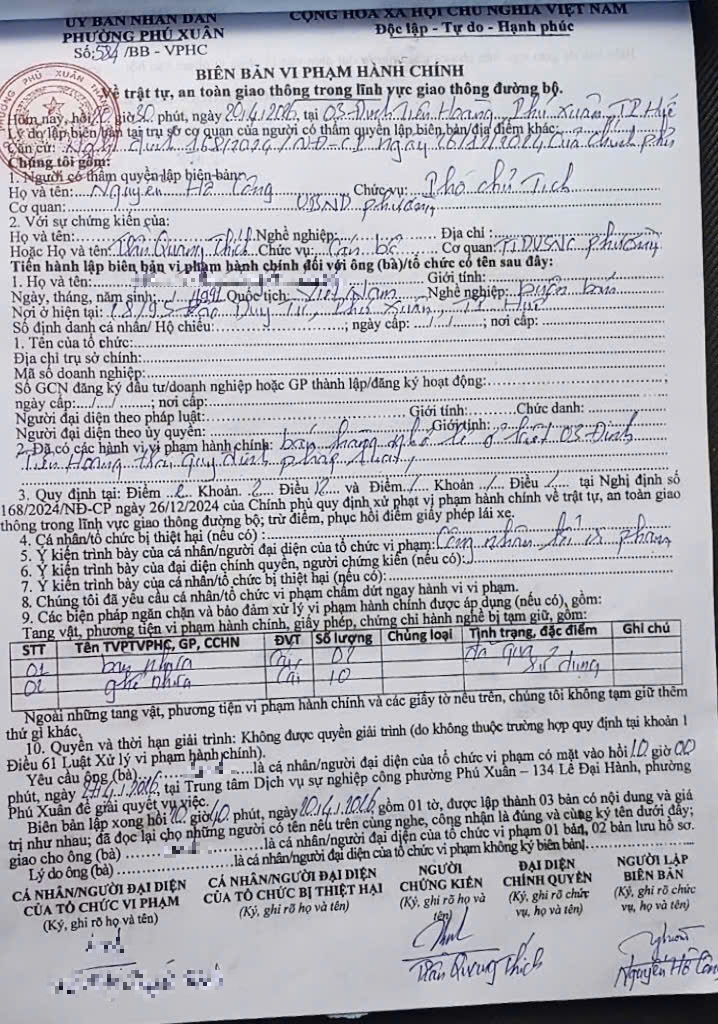 ỦY BAN NHÂN DÂN
PHƯỜNG PHÚ XUÂN
Số: 584/BB - VPHC
CỘNG HÒA XÃ HỘI CHỦ NGHĨA VIỆT NAM
Độc lập - Tự do - Hạnh phúc
BIÊN BẢN VI PHẠM HÀNH CHÍNH
Về trật tự, an toàn giao thông trong lĩnh vực giao thông đường bộ.
Hôm nay, hồi giờ 30 phút, ngày 20/4/2026, tại 03 Đinh Tiên Hoàng, Phú Xuân, TP Huế
Lý do lập biên bản tại trụ sở cơ quan của người có thẩm quyền lập biên bản/địa điểm khác:
Căn cứ: Nghị định 168/2024/NĐ-CP ngày 26/12/2024 của Chính phủ
Chúng tôi gồm:
1. Người có thẩm quyền lập biên bản:
Họ và tên: Nguyễn Hồ Công Chức vụ: Phó chủ Tịch
Cơ quan: UBND phường
2. Với sự chứng kiến của:
Họ và tên: Nghề nghiệp: Địa chỉ :
Hoặc Họ và tên: Trần Quang Thích Chức vụ: Cán bộ Cơ quan: TTDVSNC phường
Tiến hành lập biên bản vi phạm hành chính đối với ông (bà)/tổ chức có tên sau đây:
1. Họ và tên: Giới tính:
Ngày, tháng, năm sinh: / / Quốc tịch: Việt Nam Nghề nghiệp: buôn bán
Nơi ở hiện tại: Đào Duy Từ, Phú Xuân, TP Huế
Số định danh cá nhân/ Hộ chiếu: ; ngày cấp: / / ; nơi cấp:
1. Tên của tổ chức:
Địa chỉ trụ sở chính:
Mã số doanh nghiệp:
Số GCN đăng ký đầu tư/doanh nghiệp hoặc GP thành lập/đăng ký hoạt động: ;
ngày cấp: / / ; nơi cấp:
Người đại diện theo pháp luật: Giới tính: Chức danh:
Người đại diện theo ủy quyền: Giới tính:
2. Đã có các hành vi vi phạm hành chính: bán hàng nhỏ lẻ ở 03 Đinh
Tiên Hoàng trái quy định pháp luật
3. Quy định tại: Điểm Khoản Điều 12 và Điểm / Khoản / Điều / tại Nghị định số
168/2024/NĐ-CP ngày 26/12/2024 của Chính phủ quy định xử phạt vi phạm hành chính về trật tự, an toàn giao
thông trong lĩnh vực giao thông đường bộ; trừ điểm, phục hồi điểm giấy phép lái xe.
4. Cá nhân/tổ chức bị thiệt hại (nếu có) :
5. Ý kiến trình bày của cá nhân/người đại diện của tổ chức vi phạm: Công nhận lỗi vi phạm
6. Ý kiến trình bày của đại diện chính quyền, người chứng kiến (nếu có):
7. Ý kiến trình bày của cá nhân/tổ chức bị thiệt hại (nếu có):
8. Chúng tôi đã yêu cầu cá nhân/tổ chức vi phạm chấm dứt ngay hành vi vi phạm.
9. Các biện pháp ngăn chặn và bảo đảm xử lý vi phạm hành chính được áp dụng (nếu có), gồm:
Tang vật, phương tiện vi phạm hành chính, giấy phép, chứng chỉ hành nghề bị tạm giữ, gồm:
STT Tên TVPTVPHC, GP, CCHN ĐVT Số lượng Chủng loại Tình trạng, đặc điểm Ghi chú
01 bàn nhựa Cái 02 đã qua sử dụng
02 ghế nhựa Cái 10
Ngoài những tang vật, phương tiện vi phạm hành chính và các giấy tờ nêu trên, chúng tôi không tạm giữ thêm
thứ gì khác.
10. Quyền và thời hạn giải trình: Không được quyền giải trình (do không thuộc trường hợp quy định tại khoản 1
Điều 61 Luật Xử lý vi phạm hành chính).
Yêu cầu ông (bà) là cá nhân/người đại diện của tổ chức vi phạm có mặt vào hồi 10 giờ 00
phút, ngày 27/4/2026, tại Trung tâm Dịch vụ sự nghiệp công phường Phú Xuân – 134 Lê Đại Hành, phường
Phú Xuân để giải quyết vụ việc.
Biên bản lập xong hồi giờ 40 phút, ngày 20/4/2026 gồm 01 tờ, được lập thành 03 bản có nội dung và giá
trị như nhau; đã đọc lại cho những người có tên nêu trên cùng nghe, công nhận là đúng và cùng ký tên dưới đây;
giao cho ông (bà) là cá nhân/người đại diện của tổ chức vi phạm 01 bản, 02 bản lưu hồ sơ.
Lý do ông (bà) là cá nhân/người đại diện của tổ chức vi phạm không ký biên bản:
CÁ NHÂN/NGƯỜI ĐẠI DIỆN
CỦA TỔ CHỨC VI PHẠM
(Ký, ghi rõ họ và tên)
CÁ NHÂN/NGƯỜI ĐẠI DIỆN
CỦA TỔ CHỨC BỊ THIỆT HẠI
(Ký, ghi rõ họ và tên)
NGƯỜI
CHỨNG KIẾN
(Ký, ghi rõ họ và
tên)
ĐẠI DIỆN
CHÍNH QUYỀN
(Ký, ghi rõ chức
vụ, họ và tên)
NGƯỜI LẬP
BIÊN BẢN
(Ký, ghi rõ chức
vụ, họ và tên)
Trần Quang Thích
Nguyễn Hồ Công